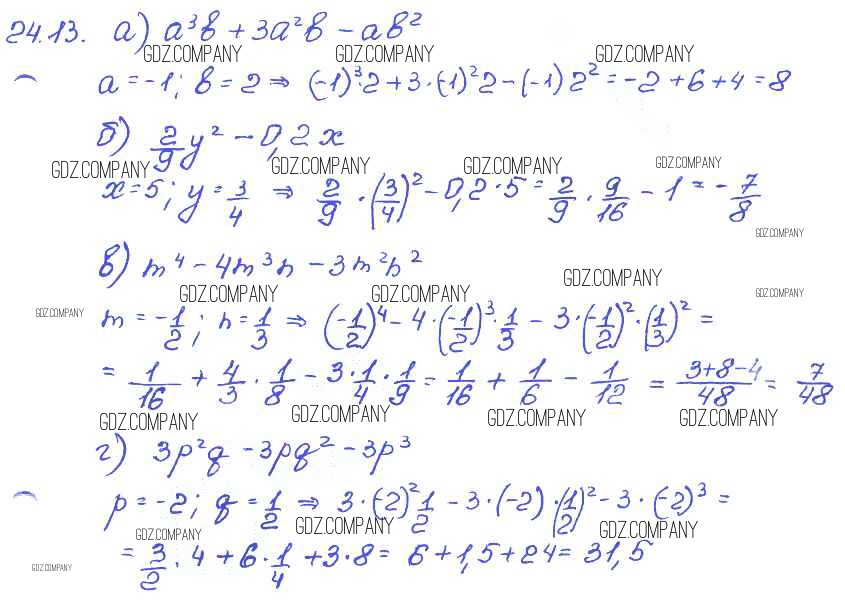 24.13. а) a³b + 3a²b − ab²
GDZ.COMPANY GDZ.COMPANY GDZ.COMPANY
a = −1; b = 2 ⇒ (−1)³·2 + 3·(−1)²2 − (−1)2² = −2 + 6 + 4 = 8
б) 2/9 y² − 0,2x
GDZ.COMPANY GDZ.COMPANY GDZ.COMPANY GDZ.COMPANY
x = 5; y = 3/4 ⇒ 2/9 · (3/4)² − 0,2·5 = 2/9 · 9/16 − 1 = −7/8
GDZ.COMPANY
в) m⁴ − 4m³n − 3m²n²
GDZ.COMPANY
GDZ.COMPANY GDZ.COMPANY GDZ.COMPANY
GDZ.COMPANY
m = −1/2; n = 1/3 ⇒ (−1/2)⁴ − 4·(−1/2)³·1/3 − 3·(−1/2)²·(1/3)² =
= 1/16 + 4/3 · 1/8 − 3·1/4·1/9 = 1/16 + 1/6 − 1/12 = (3+8−4)/48 = 7/48
GDZ.COMPANY GDZ.COMPANY GDZ.COMPANY GDZ.COMPANY
г) 3p²q − 3pq² − 3p³
p = −2; q = 1/2 ⇒ 3·(−2)²1/2 − 3·(−2)·(1/2)² − 3·(−2)³ =
GDZ.COMPANY GDZ.COMPANY GDZ.COMPANY
= 3/2 · 4 + 6·1/4 + 3·8 = 6 + 1,5 + 24 = 31,5
GDZ.COMPANY